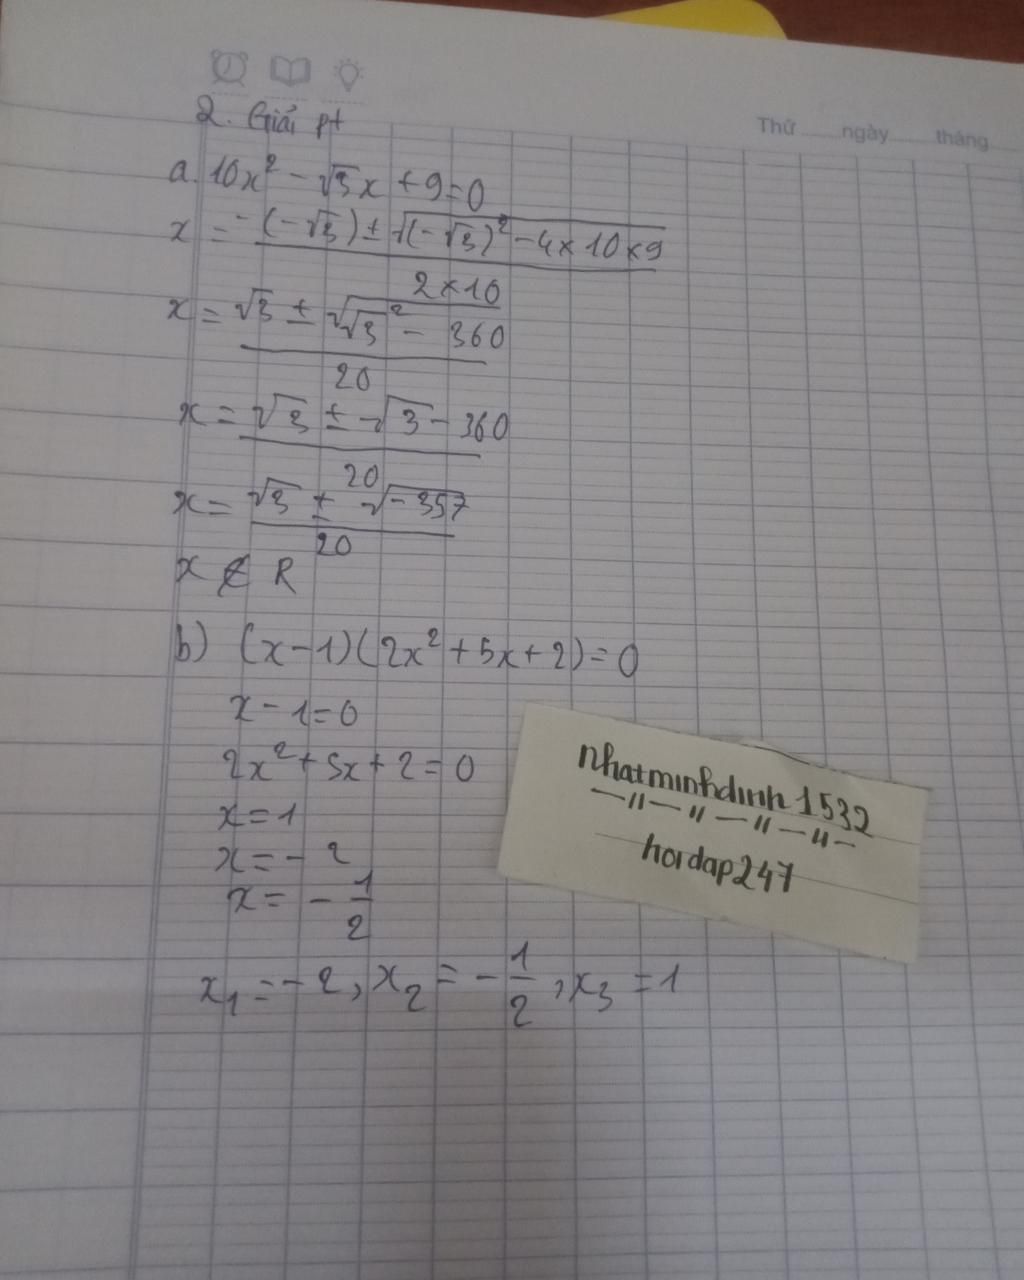 2. Giải pt
Thứ ..... ngày ..... tháng
a. 10x² - √3x + 9 = 0
x = -(-√3) ± √((-√3)² - 4 × 10 × 9) / 2 × 10
x = √3 ± √(√3² - 360) / 20
x = √3 ± √3 - 360 / 20
x = √3 ± √-357 / 20
x ∉ R
b) (x - 1)(2x² + 5x + 2) = 0
x - 1 = 0
2x² + 5x + 2 = 0
x = 1
x = - 2
x = - 1/2
x₁ = - 2, x₂ = - 1/2, x₃ = 1
nhatminhdinh1532
— " — " — " — " —
hoidap247